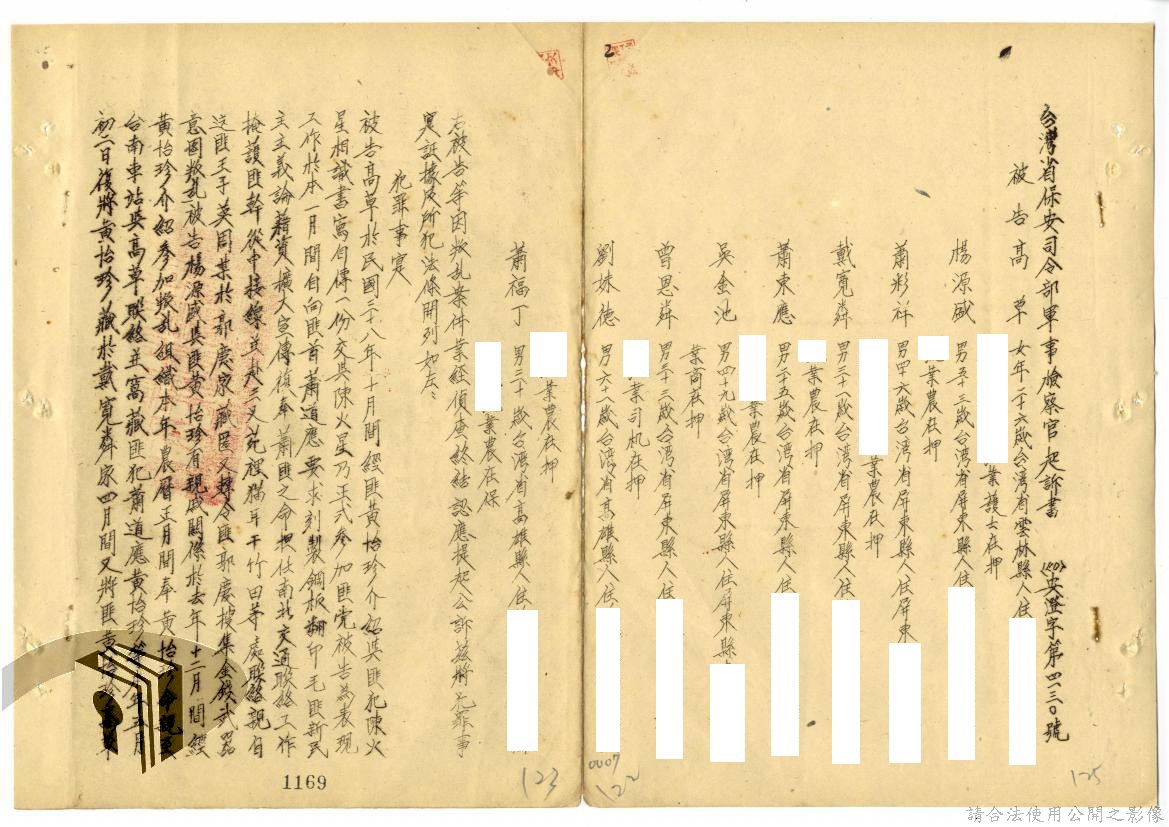 台灣省保安司令部軍事檢察官起訴書 (40)安澄字第四一三〇號
被告高草 女年二十六歲台灣省雲林縣人住
業護士在押
楊源盛 男五十三歲台灣省屏東縣人住
業農在押
蕭彩祥 男四十六歲台灣省屏東縣人住屏東
業農在押
戴寬舜 男三十一歲台灣省屏東縣人住
業農在押
蕭東應 男二十五歲台灣省屏東縣人住
業農在押
吳金池 男四十九歲台灣省屏東縣人住屏東縣
業商在押
曾恩舜 男三十三歲台灣省屏東縣人住
業司机在押
劉妹德 男六十一歲台灣省高雄縣人住
業農在押
蕭福丁 男三十歲台灣省高雄縣人住
業農在保
右被告等因叛乱案件業經偵查終結認應提起公訴茲將犯罪事
實証據及所犯法條開列如左:
犯罪事實
被告高草於民國三十八年十月間經匪黃怡珍介紹與匪犯陳火
星相識書寫自傳一份交與陳火星乃正式參加匪党被告為表現
工作於本一月間自向匪首蕭道應要求刻製鋼板翻印毛匪新民
主主義論藉資擴大宣傳復奉蕭匪之命担任南北交通聯絡工作
掩護匪幹從中接線並赴三义苑裡猫耳干竹田等處聯絡親自
送匪王子英周某於郭慶家藏匿又轉令匪郭慶搜集金錢武器
意图叛乱被告楊源盛與匪黃怡珍有親戚關係於去年十二月間經
黃怡珍介紹參加叛乱組織本年農曆正月間奉黃怡珍命親至
台南車站與高草聯絡並窩藏匪犯蕭道應黃怡珍等本年五月
初二日復將黃怡珍藏於戴寬舜家四月間又將匪黃怡珍
1169
123
0007
122
125
2
請合法使用公開之影像